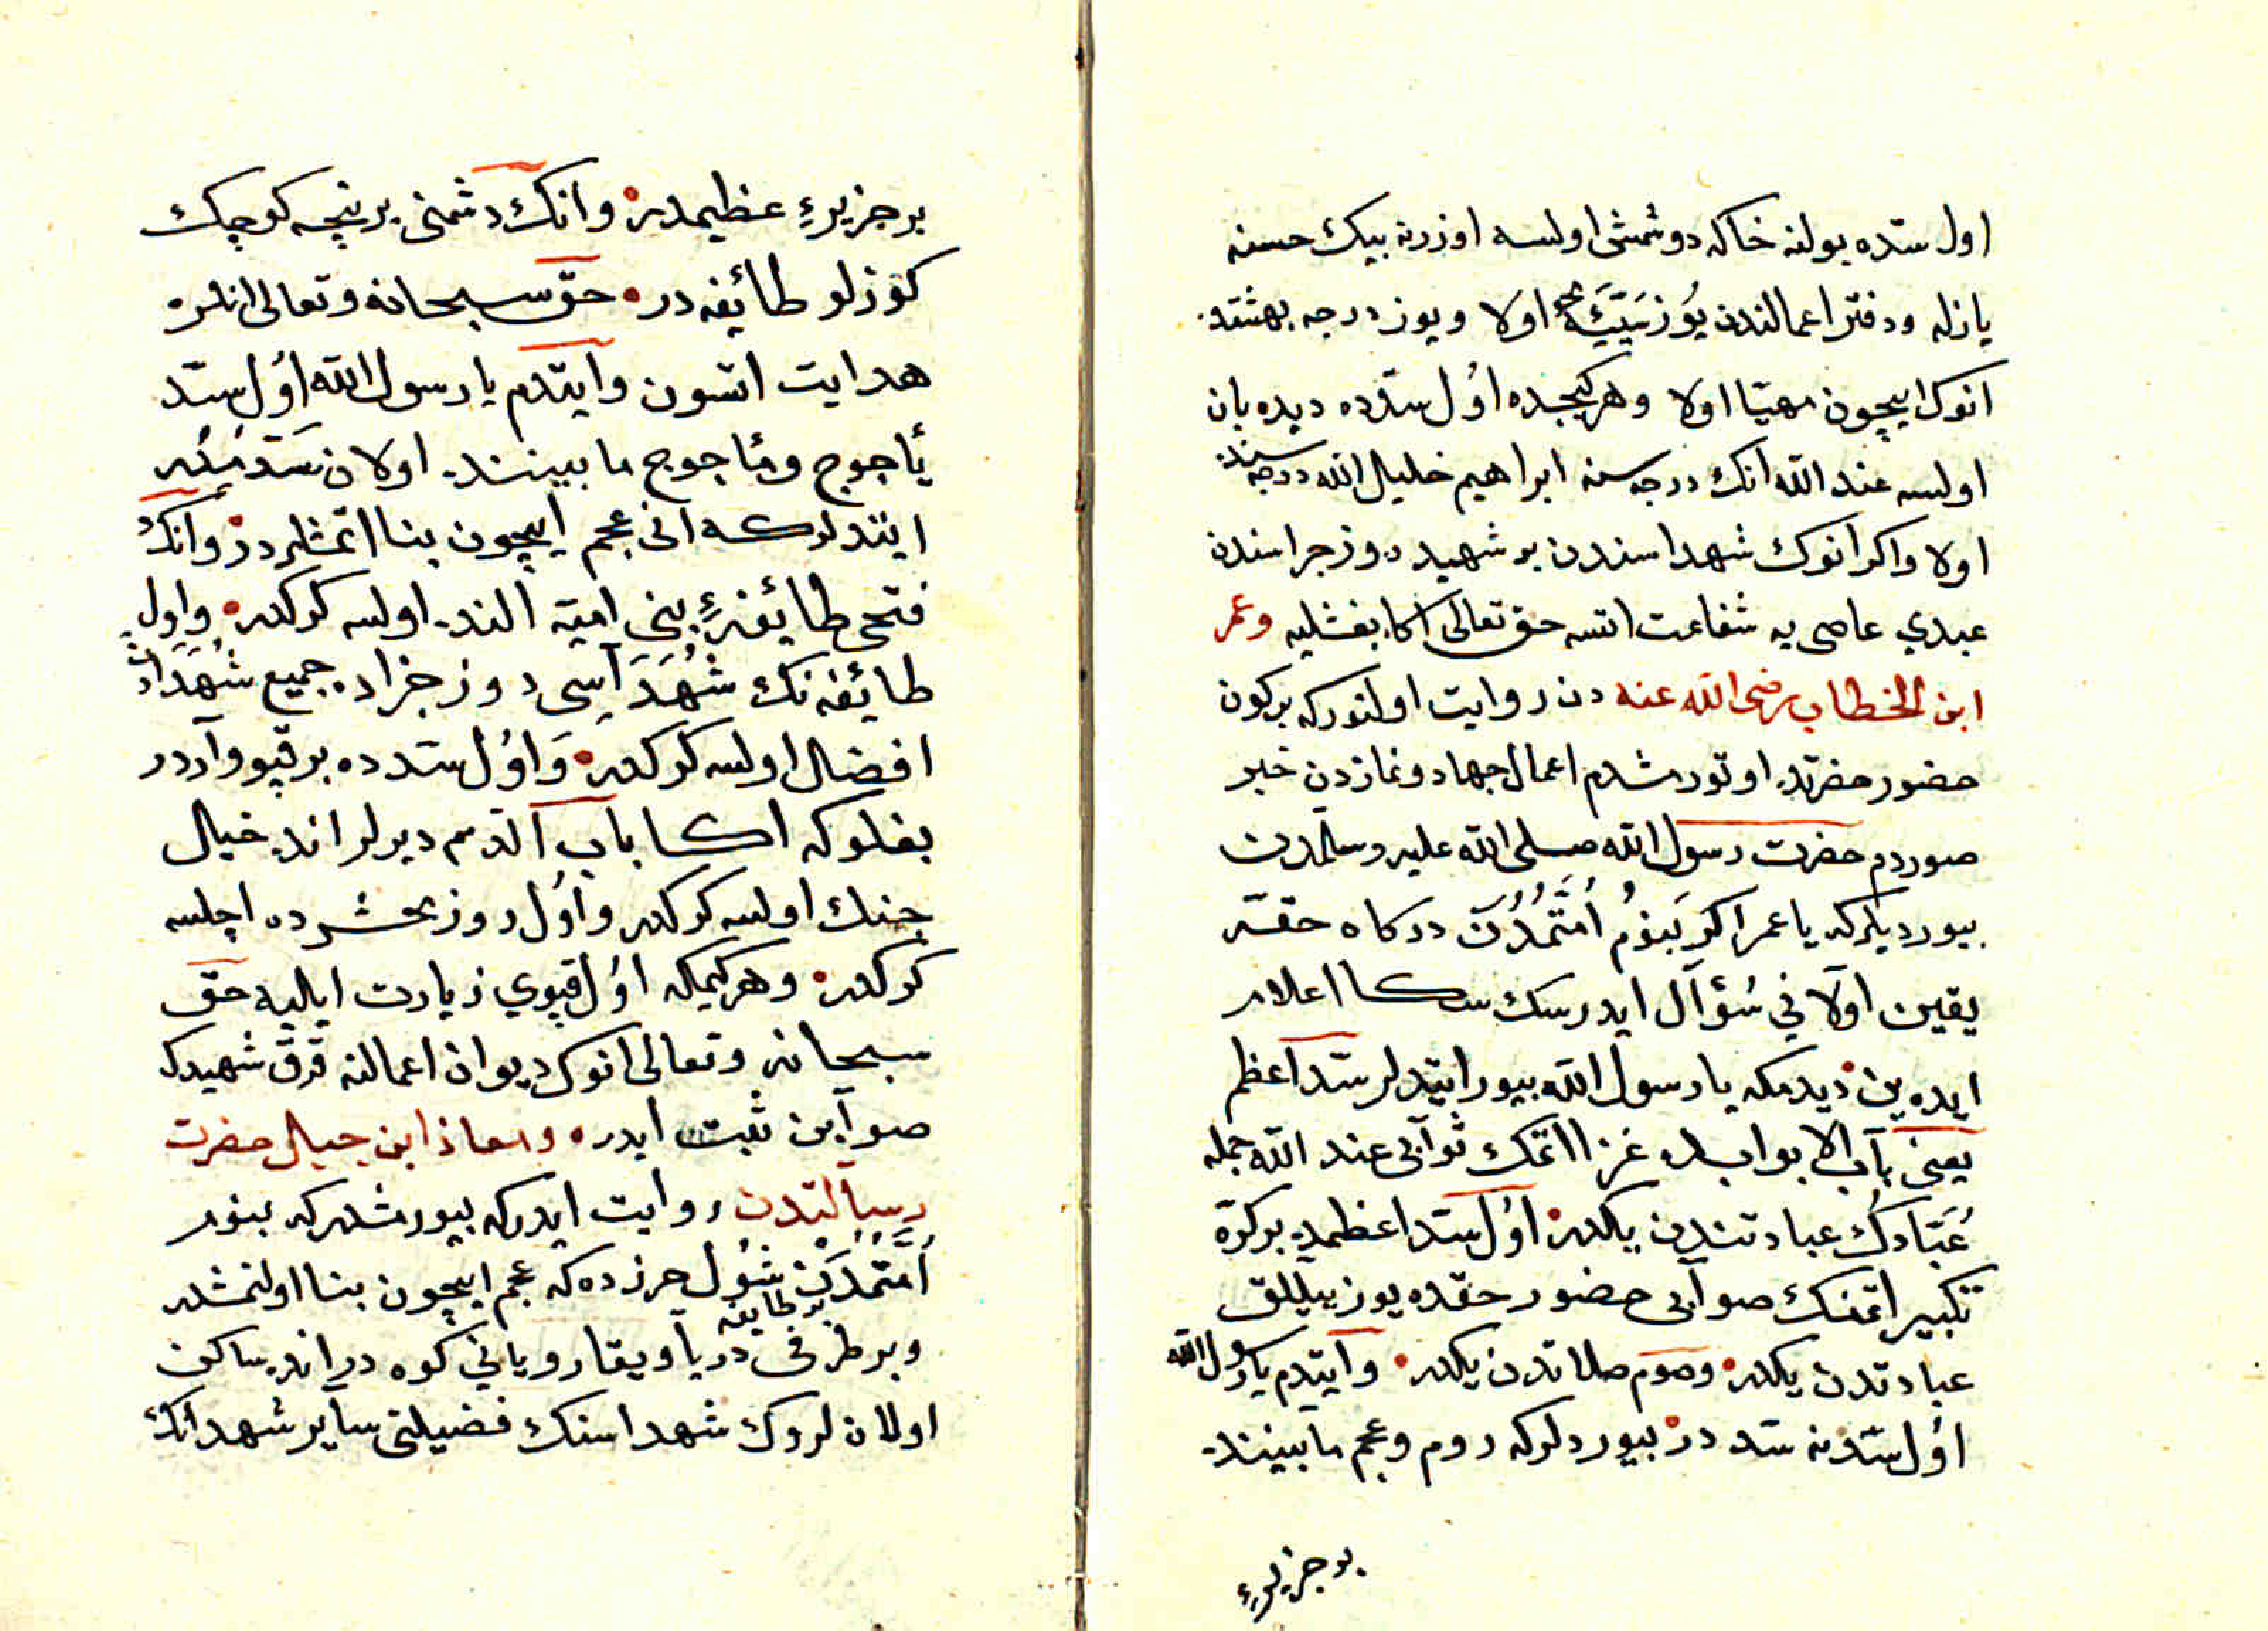 اول سدّده بولنه خاكه دوشمش اولسه اوزرنه بيك حسنه
يازله ودفتر اعمالندن يُوز سَيِّئَه محو اولا ويوز درجه بهشتده
انوك ايچون مهيّا اولا وهر كيجده اوُل سدّده ديده بان
اولسه عند الله انك درجه سنه ابراهيم خليل الله درجه سنده
اولا واكر انوك شهداسندن بر شهيد روز جزاسندن
عبدي عاصى يه شفاعت اتسه حق تعالى اكا بغشليه وعمر
ابن الخطاب رضى الله عنه دن روايت اولنور كه بركون
حضور حضرتده اوتورمشدم اعمال جهاد ونمازدن خبر
صوردم حضرت رسول الله صلى الله عليه وسلّمدن
بيورديلر كه يا عمر اكر بَنوُم اُمَّتُمدُن دركاه حقّه
يقين اولانى سُؤآل ايدرسك سكا اعلام
ايده ين ديدمكه يا رسول الله بيور ايتديلر سدّ اعظم
يعنى بآب الابوابده غزا اتمك ثوآبى عند الله جمله
عُبّادك عبادتندن يكدر اوُل سدّ اعظمده بركرّه
تكبير اتمنك صوآبى حضور حقده يوز ييللق
عبادتدن يكدر وصوم صلاتدن يكدر وآيتدم يا رسول الله
اوُل سدّ نه سدّ در بيوردلر كه روم وعجم مابيننده
بر جزيرهء
بر جزيرهء عظيمدر وانك دشمنى بر نيچه كوچك
كوزلو طائيفه در حقّ سبحانه وتعالى انلره
هدايت اتسون وايتدم يا رسول الله اوُل سدّ
يأجوج ومأجوج مابيننده اولان سَدّ مُدُر
ايتدلركه انى عجم ايچون بنا اتمشلر در وانك
فتحى طايفهءِ بنى اميّه النده اولسه كركدر واول
طائيفه نك شُهَدَآسى روز جزاده جميع شُهَدادن
افضال اولسه كركدر وَاوُل سدده بر قپو وآردر
بغلو كه اكا باب آلدم ديرلر انده خيال
جنك اولسه كركدر واوُل روز محشرده اچلسه
كركدر وهر كيمكه اوُل قپوي زيارت ايليه حق
سبحانه وتعالى انوك ديوان اعمالنه قرق شهيدك
صوآبن ثبت ايدر ومعاذ ابن جبال حضرت
رسالتدن روايت ايدركه بيورمشدر كه بنوم
اُمَّتُمدَن شوُل حرزده كه عجم ايچون بنا اولنمشدر
وبر طرفى دريا ويقارو يانى كوه در انده ساكن بر طايفه
اولان لروك شهداسنك فضيلتى سآير شهدانك